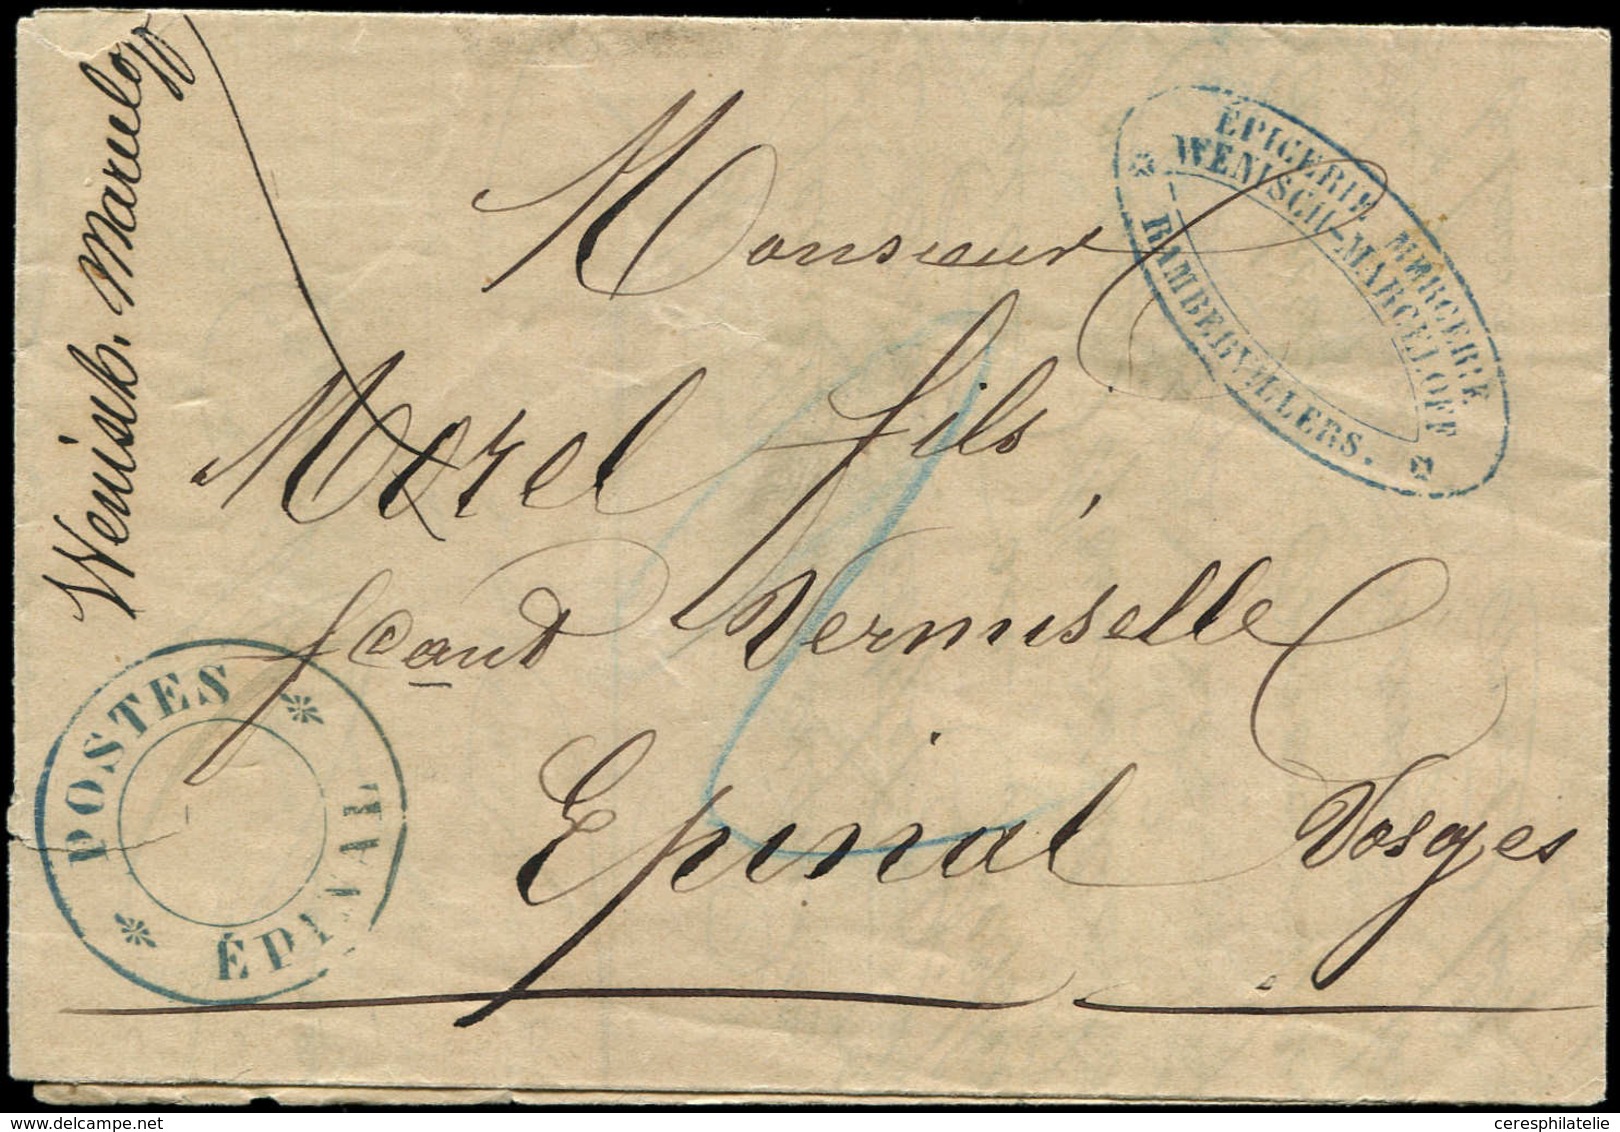 Wenisch. Marceloff
ÉPICERIE MERCERIE
WENISCH-MARCELOFF
RAMBERVILLERS.
Monsieur
Morel fils,
fcant Vermiselle
Epinal Vosges
POSTES
ÉPINAL
ceresphilatelie